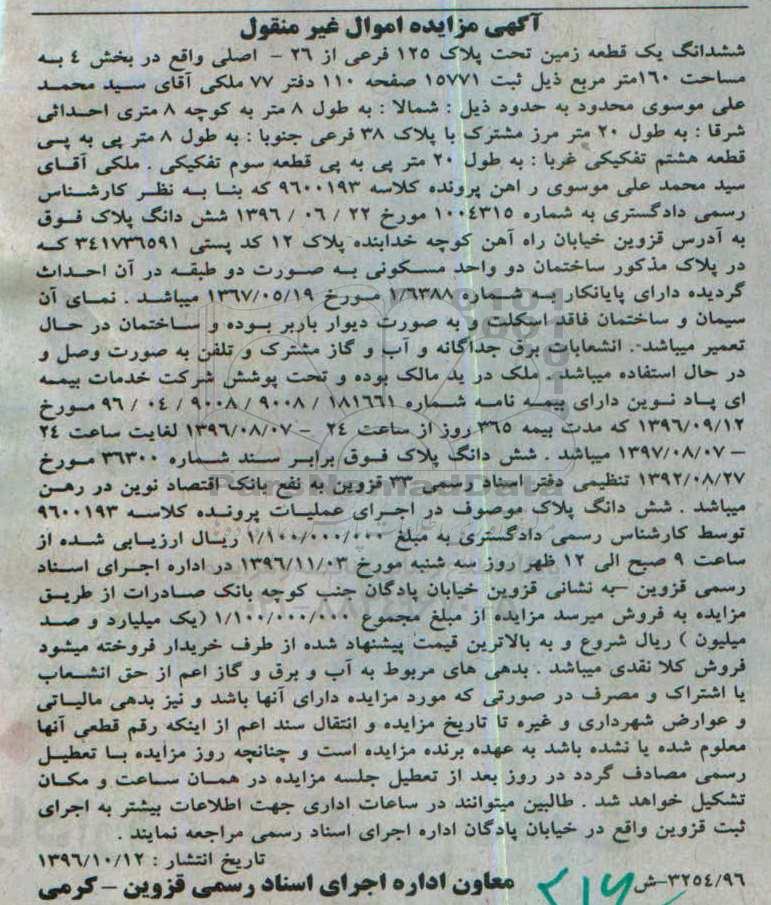 آگهی مزایده اموال غیر منقول
ششدانگ یک قطعه زمین تحت پلاک ۱۲۵ فرعی از ۲۶ - اصلی واقع در بخش ٤ به
مساحت ۱۶۰متر مربع ذیل ثبت ۱۵۷۷۱ صفحه ۱۱۰ دفتر ۷۷ ملکی آقای سید محمد
علی موسوی محدود به حدود ذیل : شمالا : به طول ۸ متر به کوچه ۸ متری احداثی
شرقا : به طول ۲۰ متر مرز مشترک با پلاک ۳۸ فرعی جنوبا : به طول ۸ متر پی به پی
قطعه هشتم تفکیکی غربا : به طول ۲۰ متر پی به پی قطعه سوم تفکیکی . ملکی آقای
سید محمد علی موسوی ر اهن پرونده کلاسه ۹۶۰۰۱۹۳ که بنا به نظر کارشناس
رسمی دادگستری به شماره ۱۰۰٤۳۱۵ مورخ ۲۲ / ۰۶ / ۱۳۹۶ شش دانگ پلاک فوق
به آدرس قزوین خیابان راه آهن کوچه خدابنده پلاک ۱۲ کد پستی ۳٤۱۷۳۶۵۹۱ که
در پلاک مذکور ساختمان دو واحد مسکونی به صورت دو طبقه در آن احداث
گردیده دارای پایانکار به شماره ۱/۶۳۸۸ مورخ ۱۳۶۷/۰۵/۱۹ میباشد . نمای آن
سیمان و ساختمان فاقد اسکلت و به صورت دیوار باربر بوده و ساختمان در حال
تعمیر میباشد . انشعابات برق جداگانه و آب و گاز مشترک و تلفن به صورت وصل و
در حال استفاده میباشد . ملک در ید مالک بوده و تحت پوشش شرکت خدمات بیمه
ای پاد نوین دارای بیمه نامه شماره ۱۸۱۶۶۱ / ۹۰۰۸ / ۹۰۰۸ / ۰٤ / ۹۶ مورخ
۱۳۹۶/۰۹/۱۲ که مدت بیمه ۳۶۵ روز از ساعت ۲٤ - ۱۳۹۶/۰۸/۰۷ لغایت ساعت ۲٤
- ۱۳۹۷/۰۸/۰۷ میباشد . شش دانگ پلاک فوق برابر سند شماره ۳۶۳۰۰ مورخ
۱۳۹۲/۰۸/۲۷ تنظیمی دفتر اسناد رسمی ۳۳ قزوین به نفع بانک اقتصاد نوین در رهن
میباشد . شش دانگ پلاک موصوف در اجرای عملیات پرونده کلاسه ۹۶۰۰۱۹۳
توسط کارشناس رسمی دادگستری به مبلغ ۱/۱۰۰/۰۰۰/۰۰۰ ریال ارزیابی شده از
ساعت ۹ صبح الی ۱۲ ظهر روز سه شنبه مورخ ۱۳۹۶/۱۱/۰۳ در اداره اجرای اسناد
رسمی قزوین -به نشانی قزوین خیابان پادگان جنب کوچه بانک صادرات از طریق
مزایده به فروش میرسد مزایده از مبلغ مجموع ۱/۱۰۰/۰۰۰/۰۰۰ (یک میلیارد و صد
میلیون ) ریال شروع و به بالاترین قیمت پیشنهاد شده از طرف خریدار فروخته میشود
فروش کلا نقدی میباشد . بدهی های مربوط به آب و برق و گاز اعم از حق انشعاب
یا اشتراک و مصرف در صورتی که مورد مزایده دارای آنها باشد و نیز بدهی مالیاتی
و عوارض شهرداری و غیره تا تاریخ مزایده و انتقال سند اعم از اینکه رقم قطعی آنها
معلوم شده یا نشده باشد به عهده برنده مزایده است و چنانچه روز مزایده با تعطیل
رسمی مصادف گردد در روز بعد از تعطیل جلسه مزایده در همان ساعت و مکان
تشکیل خواهد شد . طالبین میتوانند در ساعات اداری جهت اطلاعات بیشتر به اجرای
ثبت قزوین واقع در خیابان پادگان اداره اجرای اسناد رسمی مراجعه نمایند .
تاریخ انتشار : ۱۳۹۶/۱۰/۱۲
۳۲۵٤/۹۶-ش
معاون اداره اجرای اسناد رسمی قزوین - کرمی
ParsNamadData